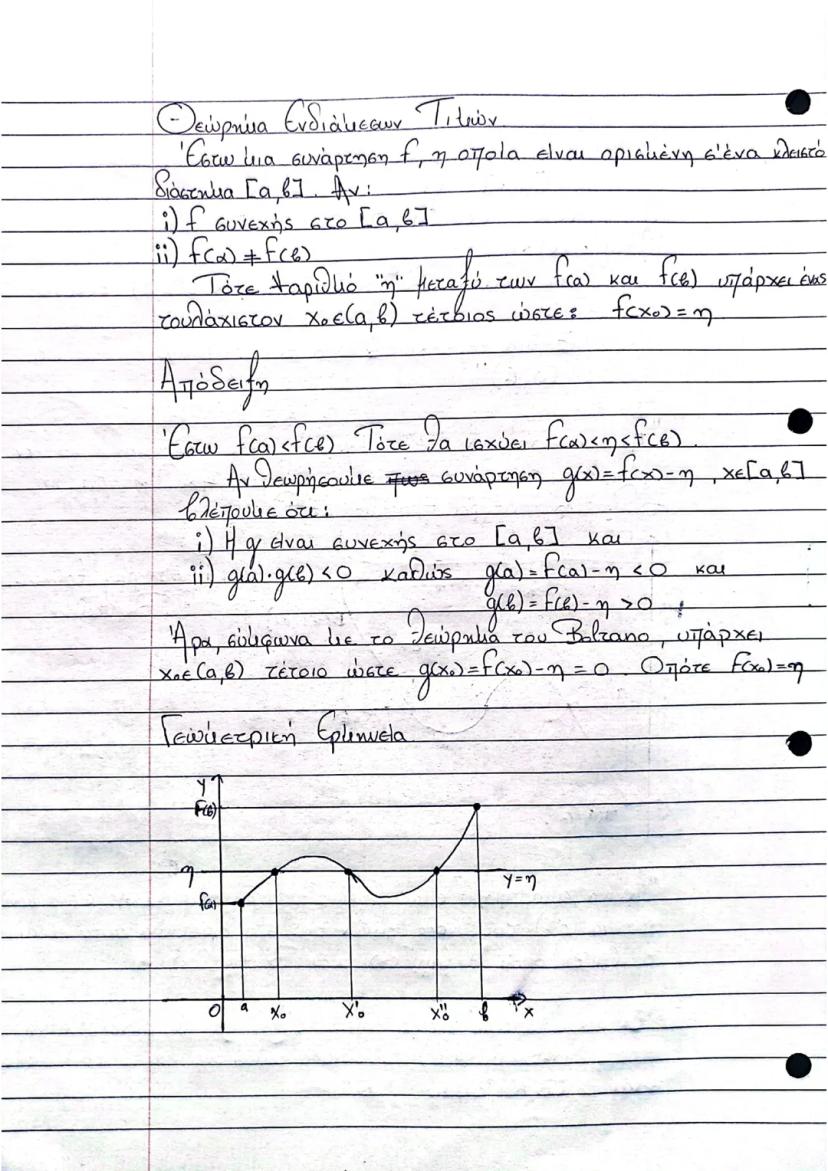 Θεώρημα Ενδιάμεσων Τιμών
Έστω μια συνάρτηση f, η οποία είναι ορισμένη σ'ένα κλειστό
διάστημα [α,β]. Αν:
i) f συνεχής στο [α,β]
ii) f(α) ≠ f(β)
Τότε ∀αριθμό "η" μεταξύ των f(α) και f(β) υπάρχει ένας
τουλάχιστον x₀∈(α,β) τέτοιος ώστε: f(x₀) = η
Απόδειξη
Έστω f(α)<f(β) Τότε θα ισχύει f(α)<η<f(β).
Αν θεωρήσουμε συνάρτηση g(x)=f(x)-η, x∈[α,β]
βλέπουμε ότι:
i) Η g είναι συνεχής στο [α,β] και
ii) g(α)·g(β) <0 καθώς g(α) = f(α)-η <0 και
g(β) = f(β)-η >0
Άρα, σύμφωνα με το θεώρημα του Bolzano, υπάρχει
x₀∈(α,β) τέτοιο ώστε g(x₀)=f(x₀)-η = 0. Οπότε f(x₀)=η
Γεωμετρική Ερμηνεία
y
f(β)
η
y=η
f(α)
O α x₀ x'₀ x''₀ β x